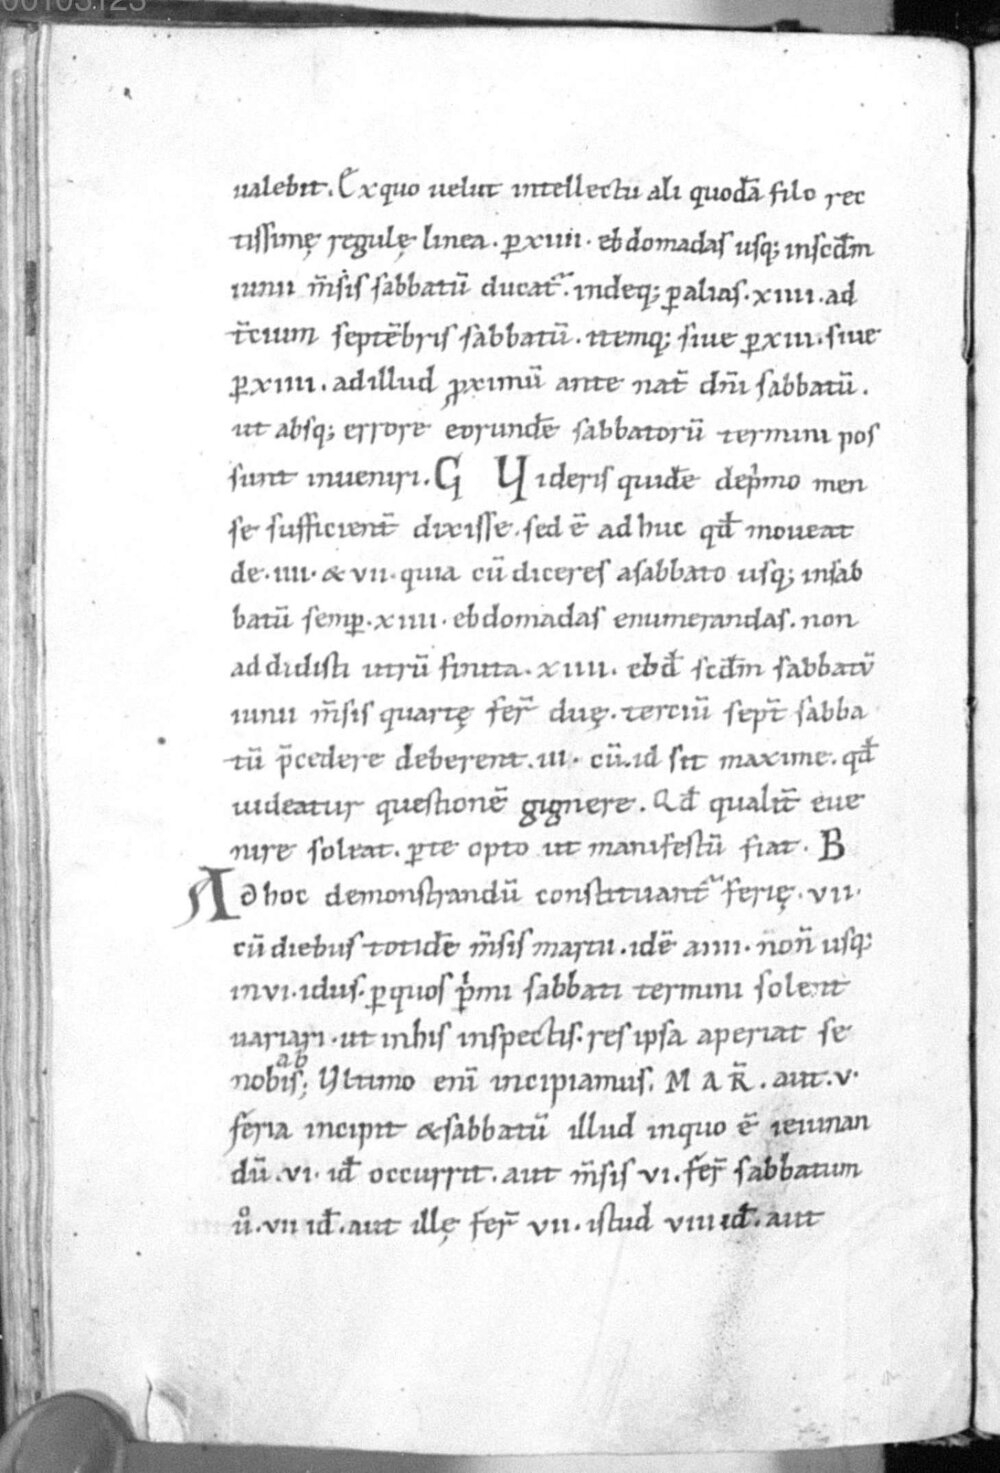 00103123
ualebit. Exquo uelut intellectu ali quodā filo rec
tissimę regulę linea. ꝑ xiiii. ebdomadas usq; inscdm̄
iunii m̄sis sabbatū ducat᷑. indeq; ꝑ alias. xiiii. ad
t̄cium septēbris sabbatū. itemq; siue ꝑ xiii. siue
ꝑ xiiii. ad illud ꝓximū ante nat̄ dn̄i sabbatū.
ut absq; errore eorundē sabbatorū termini pos
sunt inueniri. G Uideris quidē dep̄mo men
se sufficient̄ dixisse. sed ē ad huc qđ moueat
de. iiii. & vii. quia cū diceres asabbato usq; insab
batū semꝑ. xiiii. ebdomadas enumerandas. non
addidisti utrū finita. xiiii. ebđ scdm̄ sabbatū
iunii m̄sis quartę fer̄ duę. terciū sept̄ sabba
tū p̄cedere deberent. iii. cū. id sit maxime. qđ
uideatur questionē gignere. Qđ qualit̄ eue
nire soleat. ꝑte opto ut manifestū fiat. B
Ad hoc demonstrandū constituant᷑ ferię. vii.
cū diebus totidē m̄sis martii. idē a iiii. non̄ usq;
in vi. idus. ꝑquos p̄mi sabbati termini solent
uariari. ut inhis inspectis. res ipsa aperiat se
ab
nobis; Ultimo enī incipiamus. MAR̄. aut. v.
feria incipit & sabbatū illud inquo ē ieiunan
dū. vi. iđ occurrit. aut m̄sis vi. fer̄ sabbatum
uͦ. vii iđ. aut illę fer̄ vii. istud viii iđ. aut